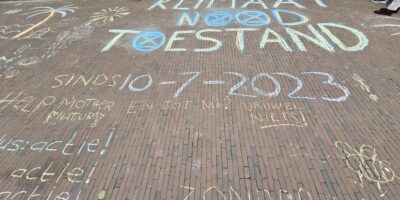 KLIMAAT
NOOD
TOESTAND
SINDS 10-7-2023
HELP MOTHER
NATURE
EN TOT NU?
NIETS!
actie!
actie!
actie!
ZONDER